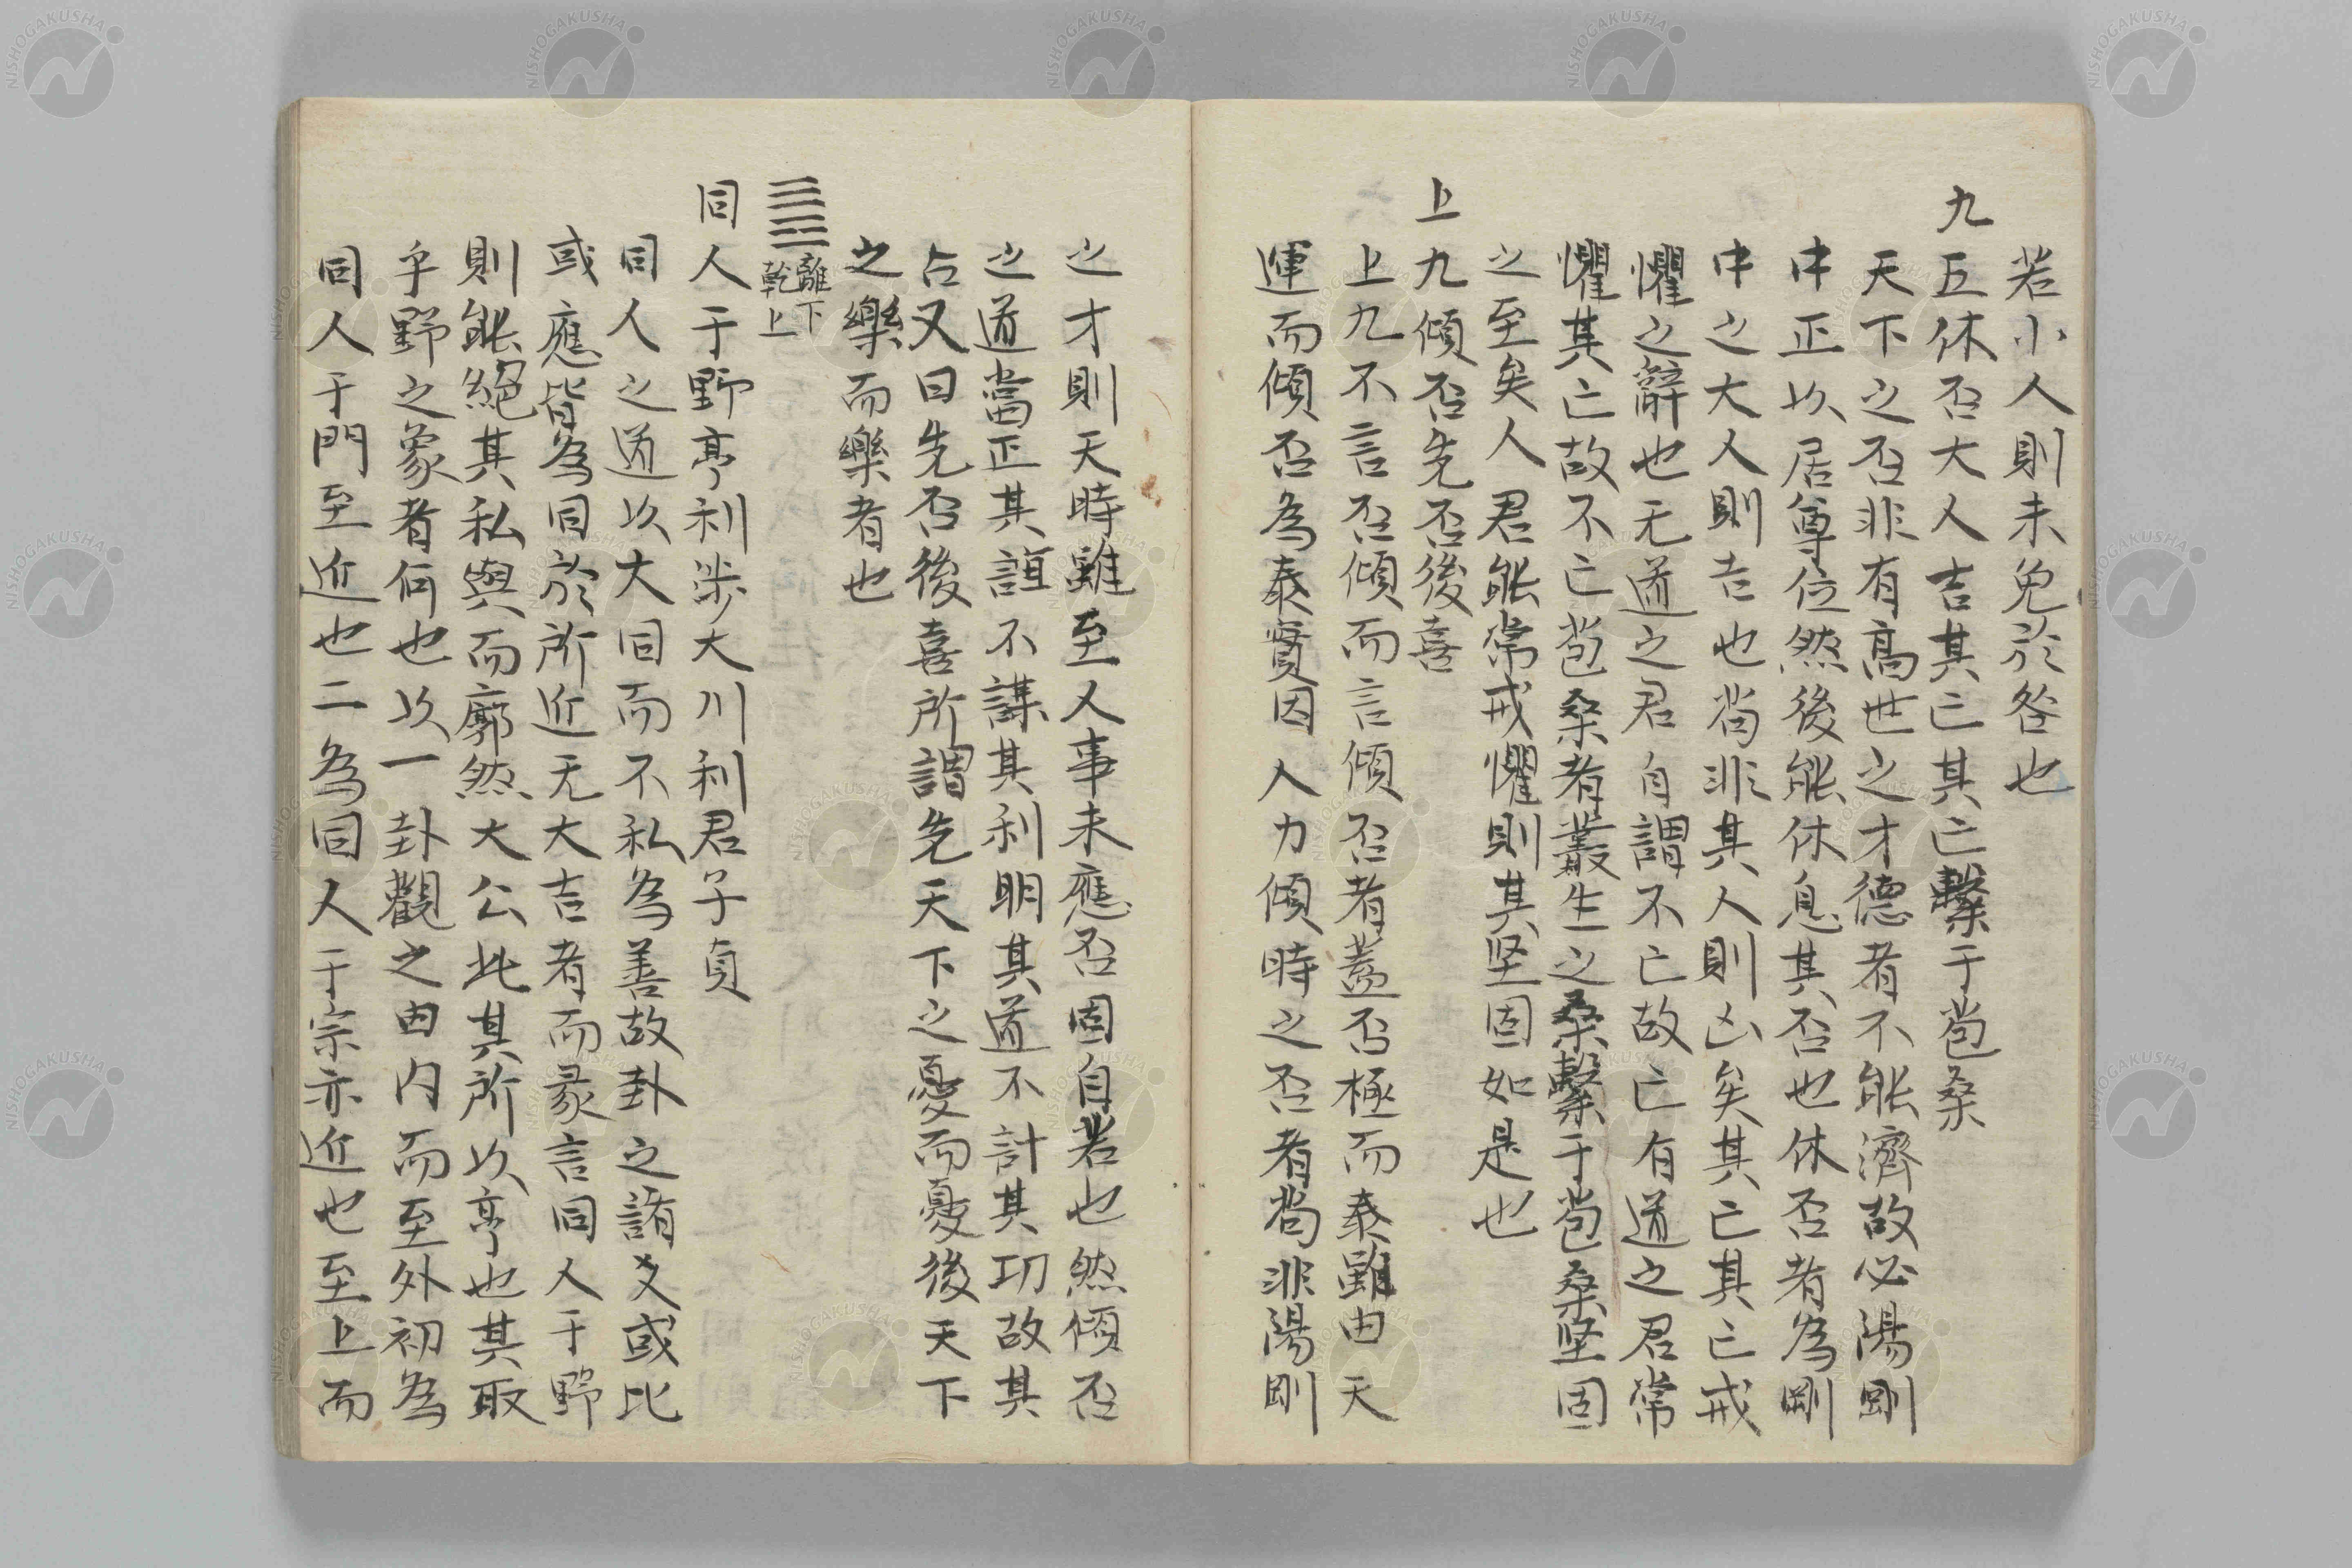 若小人則未免於咎也
九五休否大人吉其亡其亡繫于苞桑
天下之否非有高世之才德者不能濟故必陽剛
中正以居尊位然後能休息其否也休否者為剛
中之大人則吉也苟非其人則凶矣其亡其亡戒
懼之辭也无道之君自謂不亡故亡有道之君常
懼其亡故不亡苞桑者叢生之桑繫于苞桑坚固
之至矣人君能常戒懼則其坚固如是也
上九傾否先否後喜
上九不言否傾而言傾否者蓋否極而泰雖由天
運而傾否為泰實因人力傾時之否者苟非陽剛
之才則天時雖至人事未應否固自若也然傾否
之道當正其誼不謀其利明其道不計其功故其
占又曰先否後喜所謂先天下之憂而憂後天下
之樂而樂者也
離下
乾上
同人于野亨利渉大川利君子貞
同人之道以大同而不私為善故卦之諸爻或比
或應皆為同於所近无大吉者而彖言同人于野
則能絕其私與而廓然大公此其所以亨也其取
乎野之象者何也以一卦觀之由内而至外初為
同人于門至近也二為同人于宗亦近也至上而
NISHOGAKUSHA